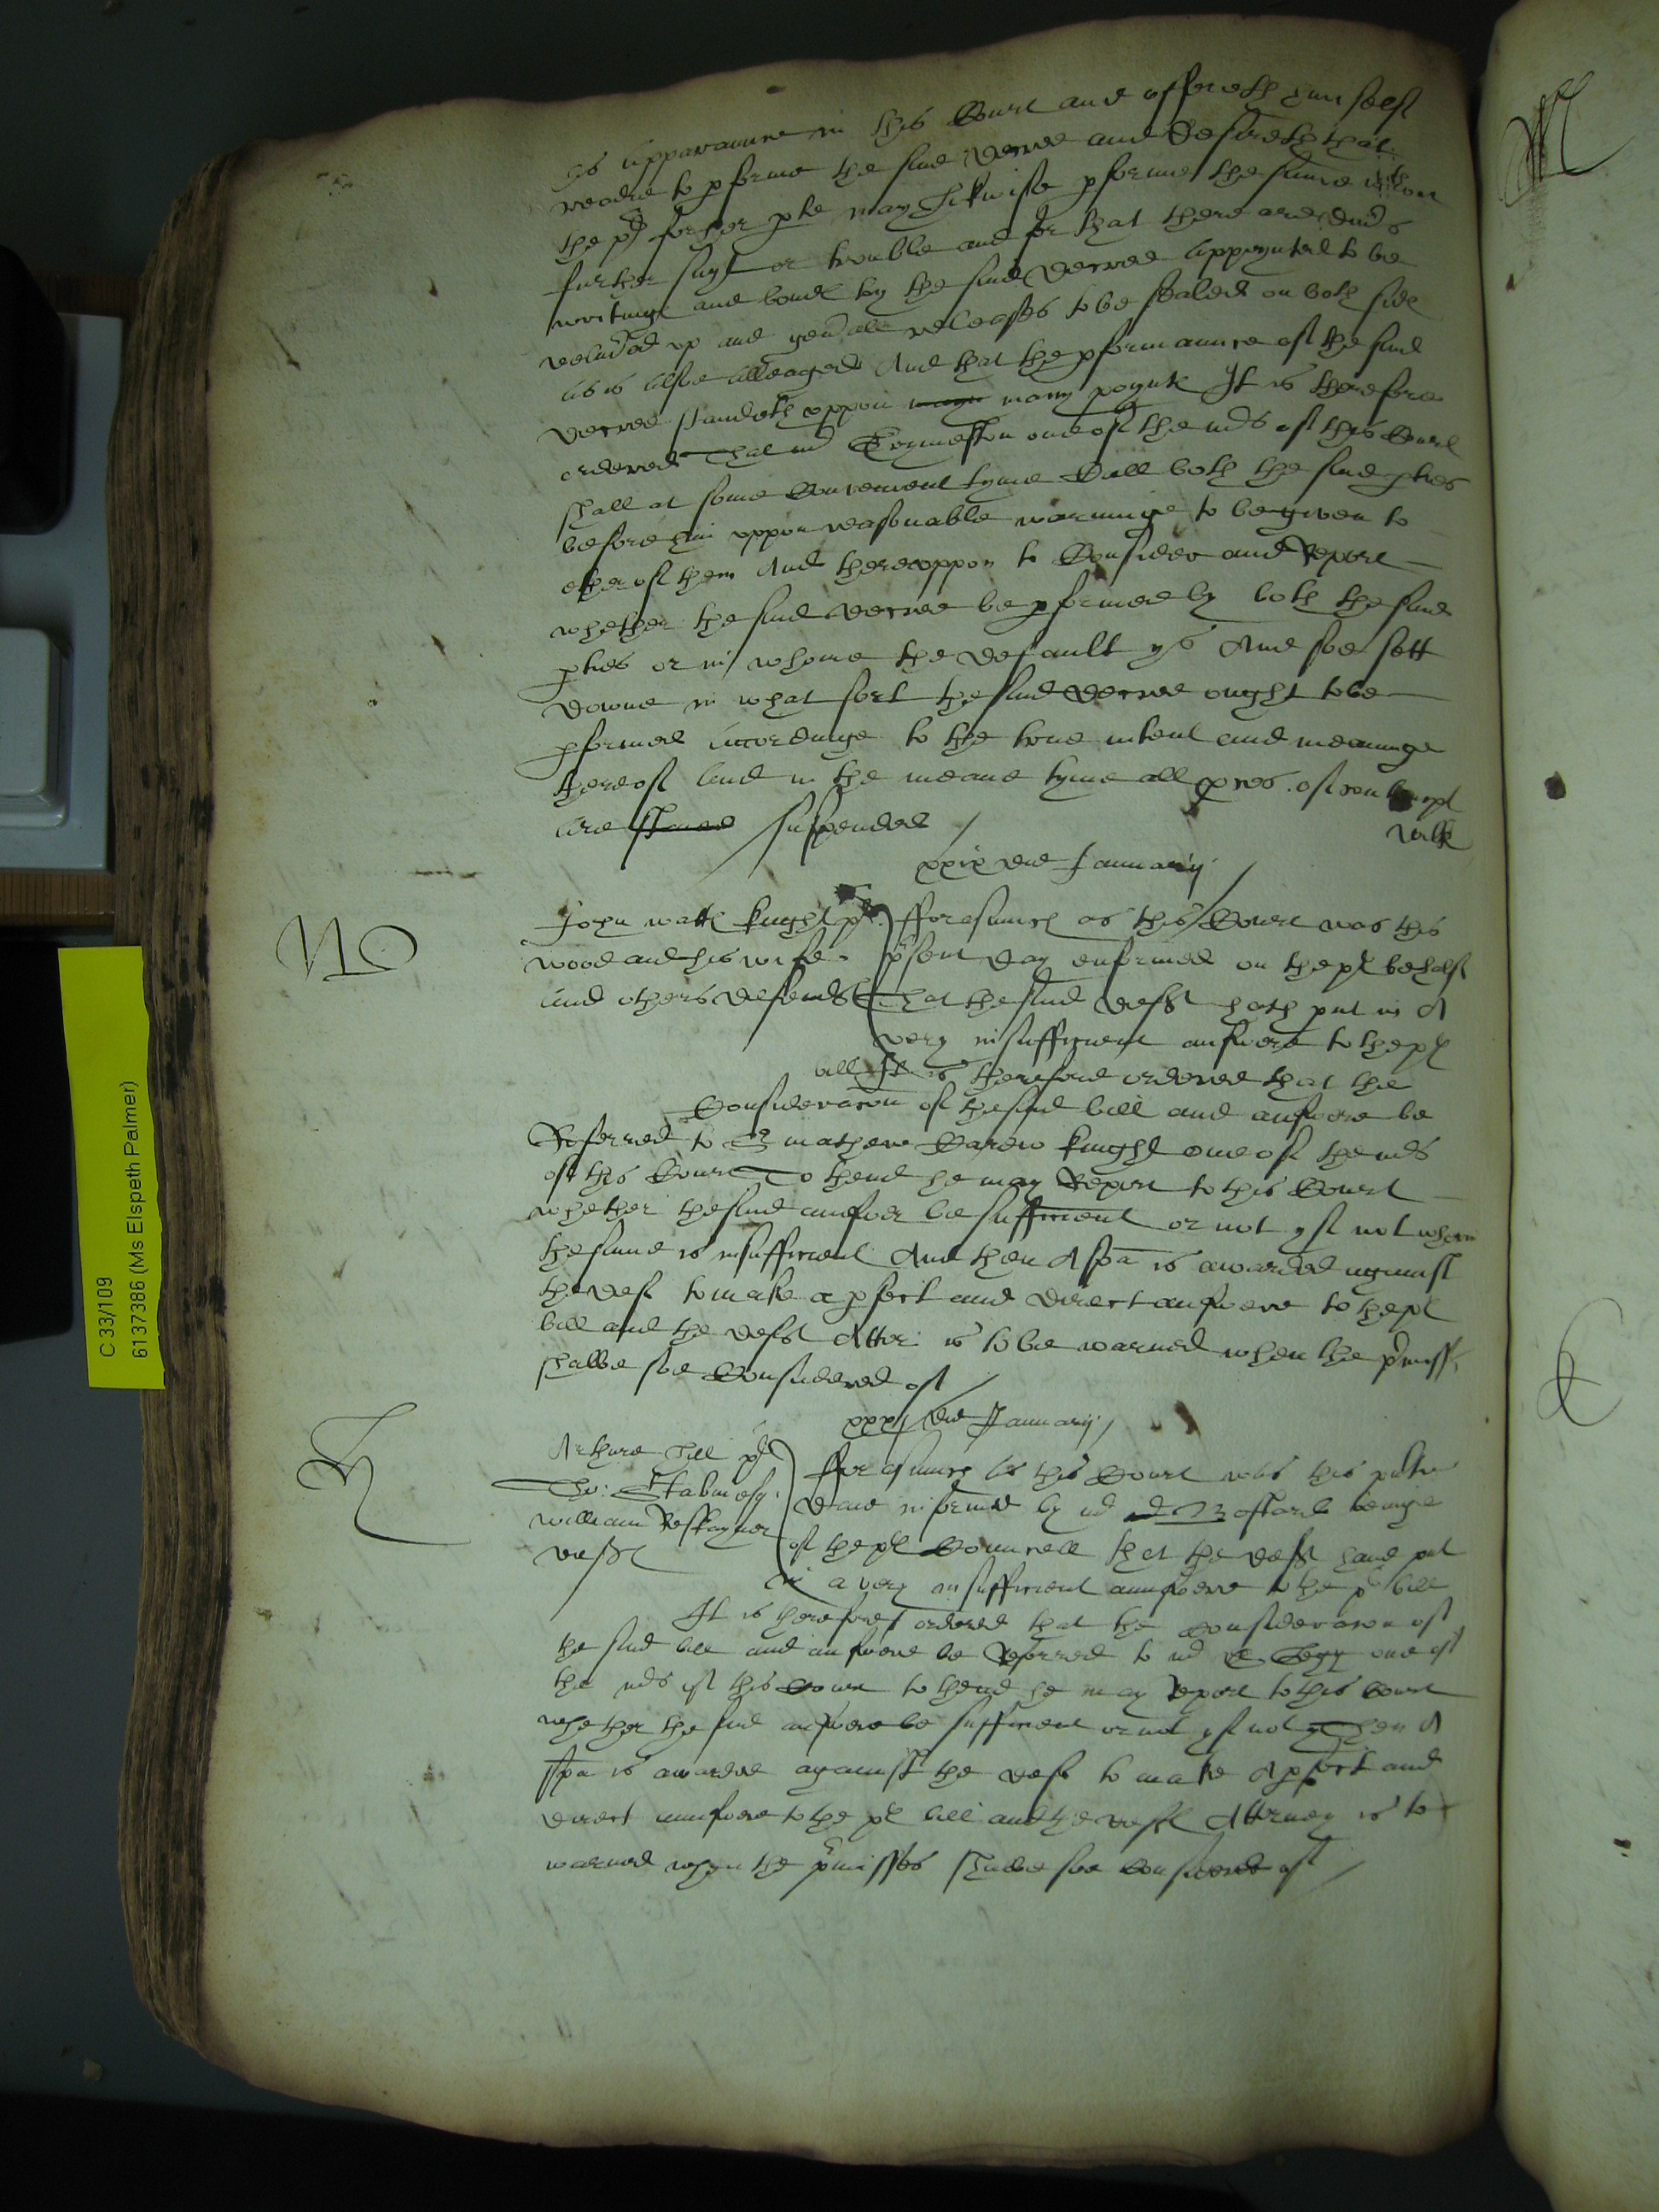 his apparaunce in this Court and offereth him self
readie to pforme the said decree and desireth that
the pl for her pte may likwise pforme the same wthout
further suyt or trouble and for that there are divs
writinge and bond by the said decree appoynted to be
delivred up and genall releasses to be sealed on both side
as is also alleaged And that the pformaunce of the said
decree standeth uppon many poynte It is therefore
ordered That mr one of the mrs of this Court
shall at some Convenient tyme Call both the said pties
before him uppon reasonable warninge to be given to
ether of them And thereuppon to Consider and Report
whether the said decree be pformed by both the said
pties or in whome the default ys And soe sett
downe in what sort the said decree ought to be
pformed accordinge to the true intent and meaninge
thereof And in the meane tyme all pces of contempt
are suspended
xxix die Januarij
John watte knight pl
wood and his wife
and others defendte
fforasmuch as this Court was this
psent day enformed on the pl behalf
That the said deft hath put in A
very insufficient answere to the pl
bill It is therefore ordered that the
Consideracon of the said bill and answere be
Referred to Sr mathew Carew knight one of the mrs
of this Court To thend he may Report to this Court
whether the said answer be sufficient or not yf not wherin
the same is insufficient And then A spa is awarded against
the def to make a pfect and direct answere to the pl
bill and the deft Attor is to be warned when the pmiss
shalbe soe Considered of
xxxj die Januarij
Arthure Hill pl
william
deft
fforasmuch as this Court was this
daie informed by mr beinge
of the pl Councell that the deft have put
in a very insufficient aunswere to the pl bill
It is therefore ordered that the consideracon of
the said bill and answere be Referred to mr one of
the mrs of this Court to thend he may Report to this Court
whether the said answere be sufficient or not yf not then A
spa is awarded against the deft to make A pfect and
direct aunswere to the pl bill and the deft Attorney is to
warned when the pmisses shalbe soe considered of
C 33/109
61373786 (Ms Elspeth Palmer)